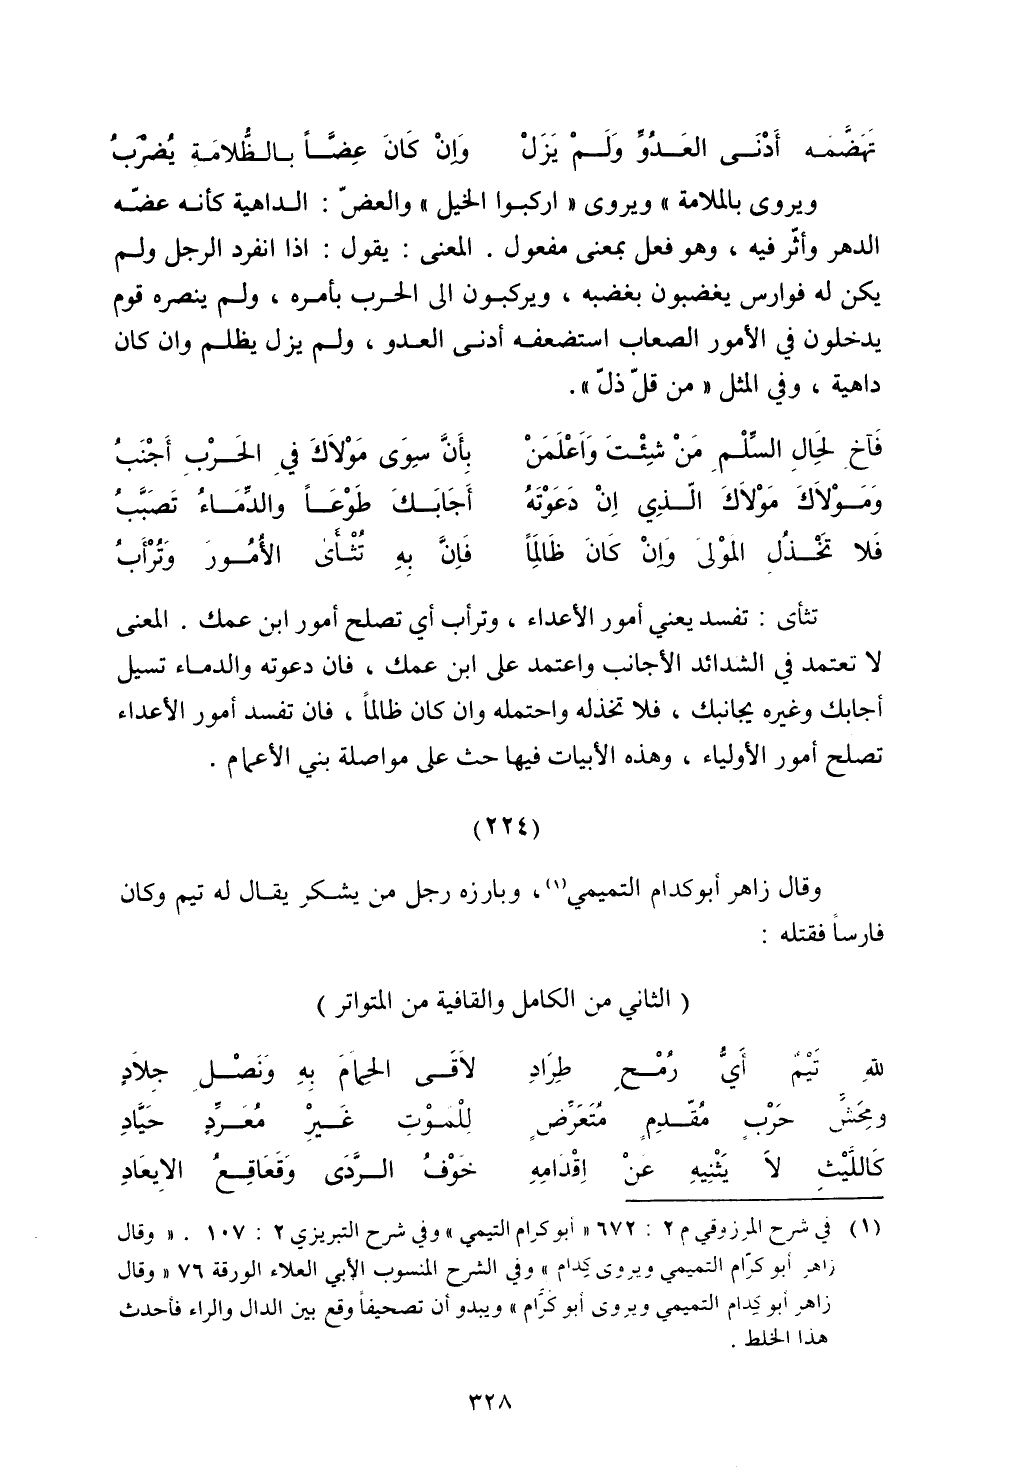 تَهَضَّمَه أَدْنَى العَدُوِّ وَلَمْ يَزَلْ وَإِنْ كَانَ عِضَّاً بالظُّلامَةِ يُضرْبُ
ويروى بالملامة » ويروى « اركبوا الخيل » والعضّ : الداهية كأنه عضّه
الدهر وأثّر فيه ، وهو فعل بمعنى مفعول . المعنى : يقول : اذا انفرد الرجل ولم
يكن له فوارس يغضبون بغضبه ، ويركبون الى الحرب بأمره ، ولم ينصره قوم
يدخلون في الأمور الصعاب استضعفه أدنى العدو ، ولم يزل يظلم وان كان
داهية ، وفي المثل « من قلّ ذلّ ».
فَآخِ لِحَالِ السِّلْمِ مَنْ شِئْتَ وَاعْلَمَنْ بِأَنَّ سِوَى مَوْلاَكَ فِي الحَرْبِ أَجْنَبُ
وَمَوْلاَكَ مَوْلاَكَ الّذِي اِنْ دَعَوْتَهُ أَجَابَكَ طَوْعَاً والدِّمَاءُ تَصَبَّبُ
فَلا تَخْذُلِ المَوْلىَ وَاِنْ كَانَ ظَالِمَاً فَاِنَّ بِهِ تُثْأَىٰ الأُمُورَ وَتُرْأَبُ
تثأى : تفسد يعني أمور الأعداء ، وترأب أي تصلح أمور ابن عمك . المعنى
لا تعتمد في الشدائد الأجانب واعتمد على ابن عمك ، فان دعوته والدماء تسيل
أجابك وغيره يجانبك ، فلا تخذله واحتمله وان كان ظالماً ، فان تفسد أمور الأعداء
تصلح أمور الأولياء ، وهذه الأبيات فيها حث على مواصلة بني الأعمام .
(٢٢٤)
وقال زاهر أبو كدام التميمي(١)، وبارزه رجل من يشكر يقال له تيم وكان
فارساً فقتله :
( الثاني من الكامل والقافية من المتواتر )
للهِ تَيْمٌ أَيُّ رُمْحِ طِرَادِ لاَقَى الحِمَامَ بِهِ وَنَصْلِ جِلاَدِ
ومِحَشِّ حَرْبٍ مُقْدِمٍ مُتَعَرِّضٍ لِلْمَوْتِ غَيرْ مُعَرِّدٍ حَيَّادِ
كَاللَّيْثِ لاَ يَثْنِيهِ عَنْ اِقْدَامِهِ خَوْفُ الرَّدَى وَقَعَاقِعُ الايعَادِ
(١) في شرح المرزوقي م ٢ : ٦٧٢ « أبو كرام التيمي » وفي شرح التبريزي ٢ : ١٠٧ . « وقال
زاهر أبو كرّام التميمي ويروى كِدام » وفي الشرح المنسوب الأبي العلاء الورقة ٧٦ « وقال
زاهر أبو كِدام التميمي ويروى أبو كرَّام » ويبدو أن تصحيفاً وقع بين الدال والراء فأحدث
هذا الخلط .
٣٢٨